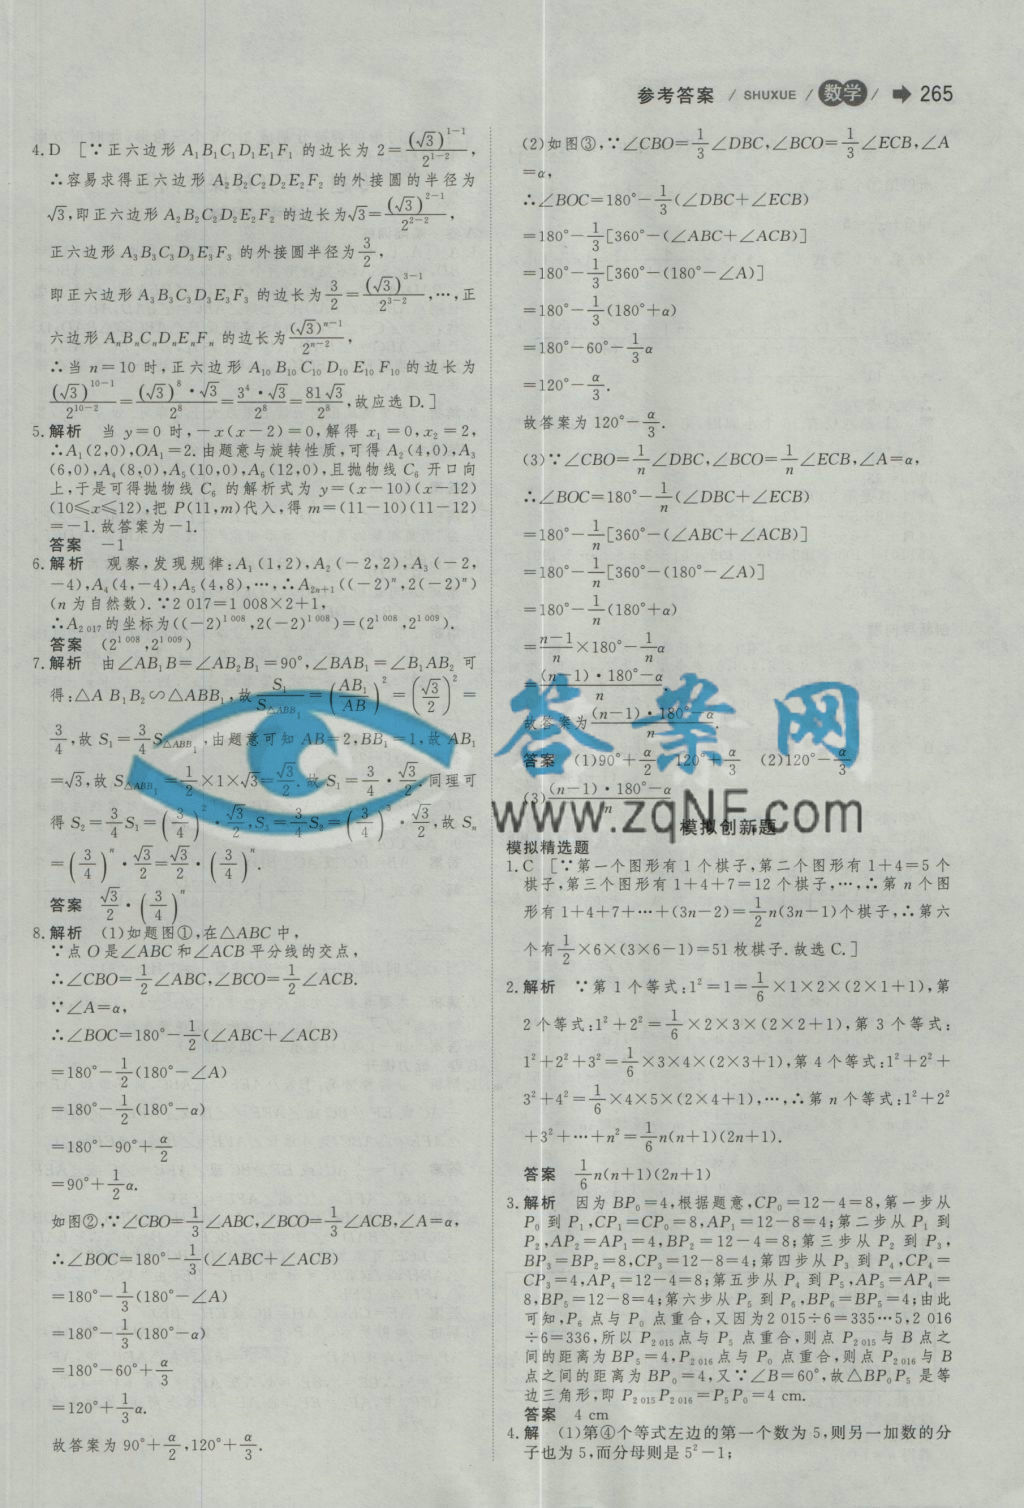 参考答案 / SHUXUE / 数学 / ➔ 265
4. D [∵正六边形 A₁B₁C₁D₁E₁F₁ 的边长为 2=(√3)^(1-1)/2^(1-2),
∴容易求得正六边形 A₂B₂C₂D₂E₂F₂ 的外接圆的半径为
√3,即正六边形 A₂B₂C₂D₂E₂F₂ 的边长为√3=(√3)^(2-1)/2^(2-2),
正六边形 A₃B₃C₃D₃E₃F₃ 的外接圆半径为3/2,
即正六边形 A₃B₃C₃D₃E₃F₃ 的边长为3/2=(√3)^(3-1)/2^(3-2),…,正
六边形 AₙBₙCₙDₙEₙFₙ 的边长为(√3)^(n-1)/2^(n-2),
∴当 n=10 时,正六边形 A₁₀B₁₀C₁₀D₁₀E₁₀F₁₀ 的边长为
(√3)^(10-1)/2^(10-2)=(√3)^8·√3/2^8=3^4·√3/2^8=81√3/2^8,故应选 D.]
5. 解析 当 y=0 时,-x(x-2)=0,解得 x₁=0,x₂=2,
∴A₁(2,0),OA₁=2.由题意与旋转性质,可得 A₂(4,0),A₃
(6,0),A₄(8,0),A₅(10,0),A₆(12,0),且抛物线 C₆ 开口向
上,于是可得抛物线 C₆ 的解析式为 y=(x-10)(x-12)
(10≤x≤12),把 P(11,m)代入,得 m=(11-10)(11-12)
=-1.故答案为-1.
答案 -1
6. 解析 观察,发现规律:A₁(1,2),A₂(-2,2),A₃(-2,
-4),A₄(4,-4),A₅(4,8),…,∴A₂ₙ₊₁((-2)ⁿ,2(-2)ⁿ)
(n 为自然数).∵2 017=1 008×2+1,
∴A₂ ₀₁₇的坐标为((-2)^(1 008),2(-2)^(1 008))=(2^(1 008),2^(1 009)).
答案 (2^(1 008),2^(1 009))
7. 解析 由∠AB₁B=∠AB₂B₁=90°,∠BAB₁=∠B₁AB₂ 可
得:△A B₁B₂∽△ABB₁,故S₁/S△ABB₁=(AB₁/AB)²=(√3/2)²=
3/4,故 S₁=3/4 S△ABB₁,由题意可知 AB=2,BB₁=1,故 AB₁
=√3,故 S△ABB₁=1/2×1×√3=√3/2.故 S₁=3/4·√3/2.同理可
得 S₂=3/4 S₁=(3/4)²·√3/2,S₃=3/4 S₂=(3/4)³·√3/2,故 Sₙ
=(3/4)ⁿ·√3/2=√3/2·(3/4)ⁿ.
答案 √3/2·(3/4)ⁿ
8. 解析 (1)如题图①,在△ABC 中,
∵点 O 是∠ABC 和∠ACB 平分线的交点,
∴∠CBO=1/2∠ABC,∠BCO=1/2∠ACB.
∵∠A=α,
∴∠BOC=180°-1/2(∠ABC+∠ACB)
=180°-1/2(180°-∠A)
=180°-1/2(180°-α)
=180°-90°+α/2
=90°+1/2α.
如图②,∵∠CBO=1/3∠ABC,∠BCO=1/3∠ACB,∠A=α,
∴∠BOC=180°-1/3(∠ABC+∠ACB)
=180°-1/3(180°-∠A)
=180°-1/3(180°-α)
=180°-60°+α/3
=120°+1/3α.
故答案为 90°+α/2,120°+α/3.
(2)如图③,∵∠CBO=1/3∠DBC,∠BCO=1/3∠ECB,∠A
=α,
∴∠BOC=180°-1/3(∠DBC+∠ECB)
=180°-1/3[360°-(∠ABC+∠ACB)]
=180°-1/3[360°-(180°-∠A)]
=180°-1/3(180°+α)
=180°-60°-1/3α
=120°-α/3.
故答案为 120°-α/3.
(3)∵∠CBO=1/n∠DBC,∠BCO=1/n∠ECB,∠A=α,
∴∠BOC=180°-1/n(∠DBC+∠ECB)
=180°-1/n[360°-(∠ABC+∠ACB)]
=180°-1/n[360°-(180°-∠A)]
=180°-1/n(180°+α)
=(n-1)/n×180°-1/nα
=((n-1)·180°-α)/n.
故答案为((n-1)·180°-α)/n.
答案 (1)90°+α/2 120°+α/3 (2)120°-α/3
(3)((n-1)·180°-α)/n
答案网
www.zqNF.com
模拟创新题
模拟精选题
1. C [∵第一个图形有 1 个棋子,第二个图形有 1+4=5 个
棋子,第三个图形有 1+4+7=12 个棋子,…,∴第 n 个图
形有 1+4+7+…+(3n-2)=1/2n(3n-1)个棋子,∴第六
个有1/2×6×(3×6-1)=51 枚棋子.故选 C.]
2. 解析 ∵第 1 个等式:1²=1=1/6×1×2×(2×1+1),第
2 个等式:1²+2²=1/6×2×3×(2×2+1),第 3 个等式:
1²+2²+3²=1/6×3×4×(2×3+1),第 4 个等式:1²+2²+
3²+4²=1/6×4×5×(2×4+1),…,∴第 n 个等式:1²+2²
+3²+…+n²=1/6n(n+1)(2n+1).
答案 1/6n(n+1)(2n+1)
3. 解析 因为 BP₀=4,根据题意,CP₀=12-4=8,第一步从
P₀ 到 P₁,CP₁=CP₀=8,AP₁=12-8=4;第二步从 P₁ 到
P₂,AP₂=AP₁=4,BP₂=12-4=8;第三步从 P₂ 到 P₃,
BP₃=BP₂=8,CP₃=12-8=4;第四步从 P₃ 到 P₄,CP₄=
CP₃=4,AP₄=12-4=8;第五步从 P₄ 到 P₅,AP₅=AP₄=
8,BP₅=12-8=4;第六步从 P₅ 到 P₆,BP₆=BP₅=4;由此
可知,P₆ 点与 P₀ 点重合,又因为2 015÷6=335…5,2 016
÷6=336,所以 P₂ ₀₁₅点与 P₅ 点重合,则点 P₂ ₀₁₅与 B 点之
间的距离为 BP₅=4,P₂ ₀₁₆点与 P₀ 点重合,则点 P₂ ₀₁₆与 B
点之间的距离为 BP₀=4,又∵∠B=60°,故△BP₀P₅ 是等
边三角形,即 P₂ ₀₁₅P₂ ₀₁₆=P₅P₀=4 cm.
答案 4 cm
4. 解 (1)第④个等式左边的第一个数为 5,则另一加数的分
子也为 5,而分母则是 5²-1;